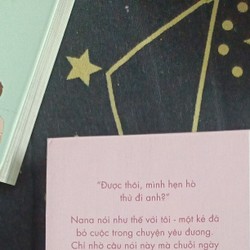 "Được thôi, mình hẹn hò
thử đi anh?"
Nana nói như thế với tôi - một kẻ đã
bỏ cuộc trong chuyện yêu đương.
Chỉ nhờ câu nói này mà chuỗi ngày